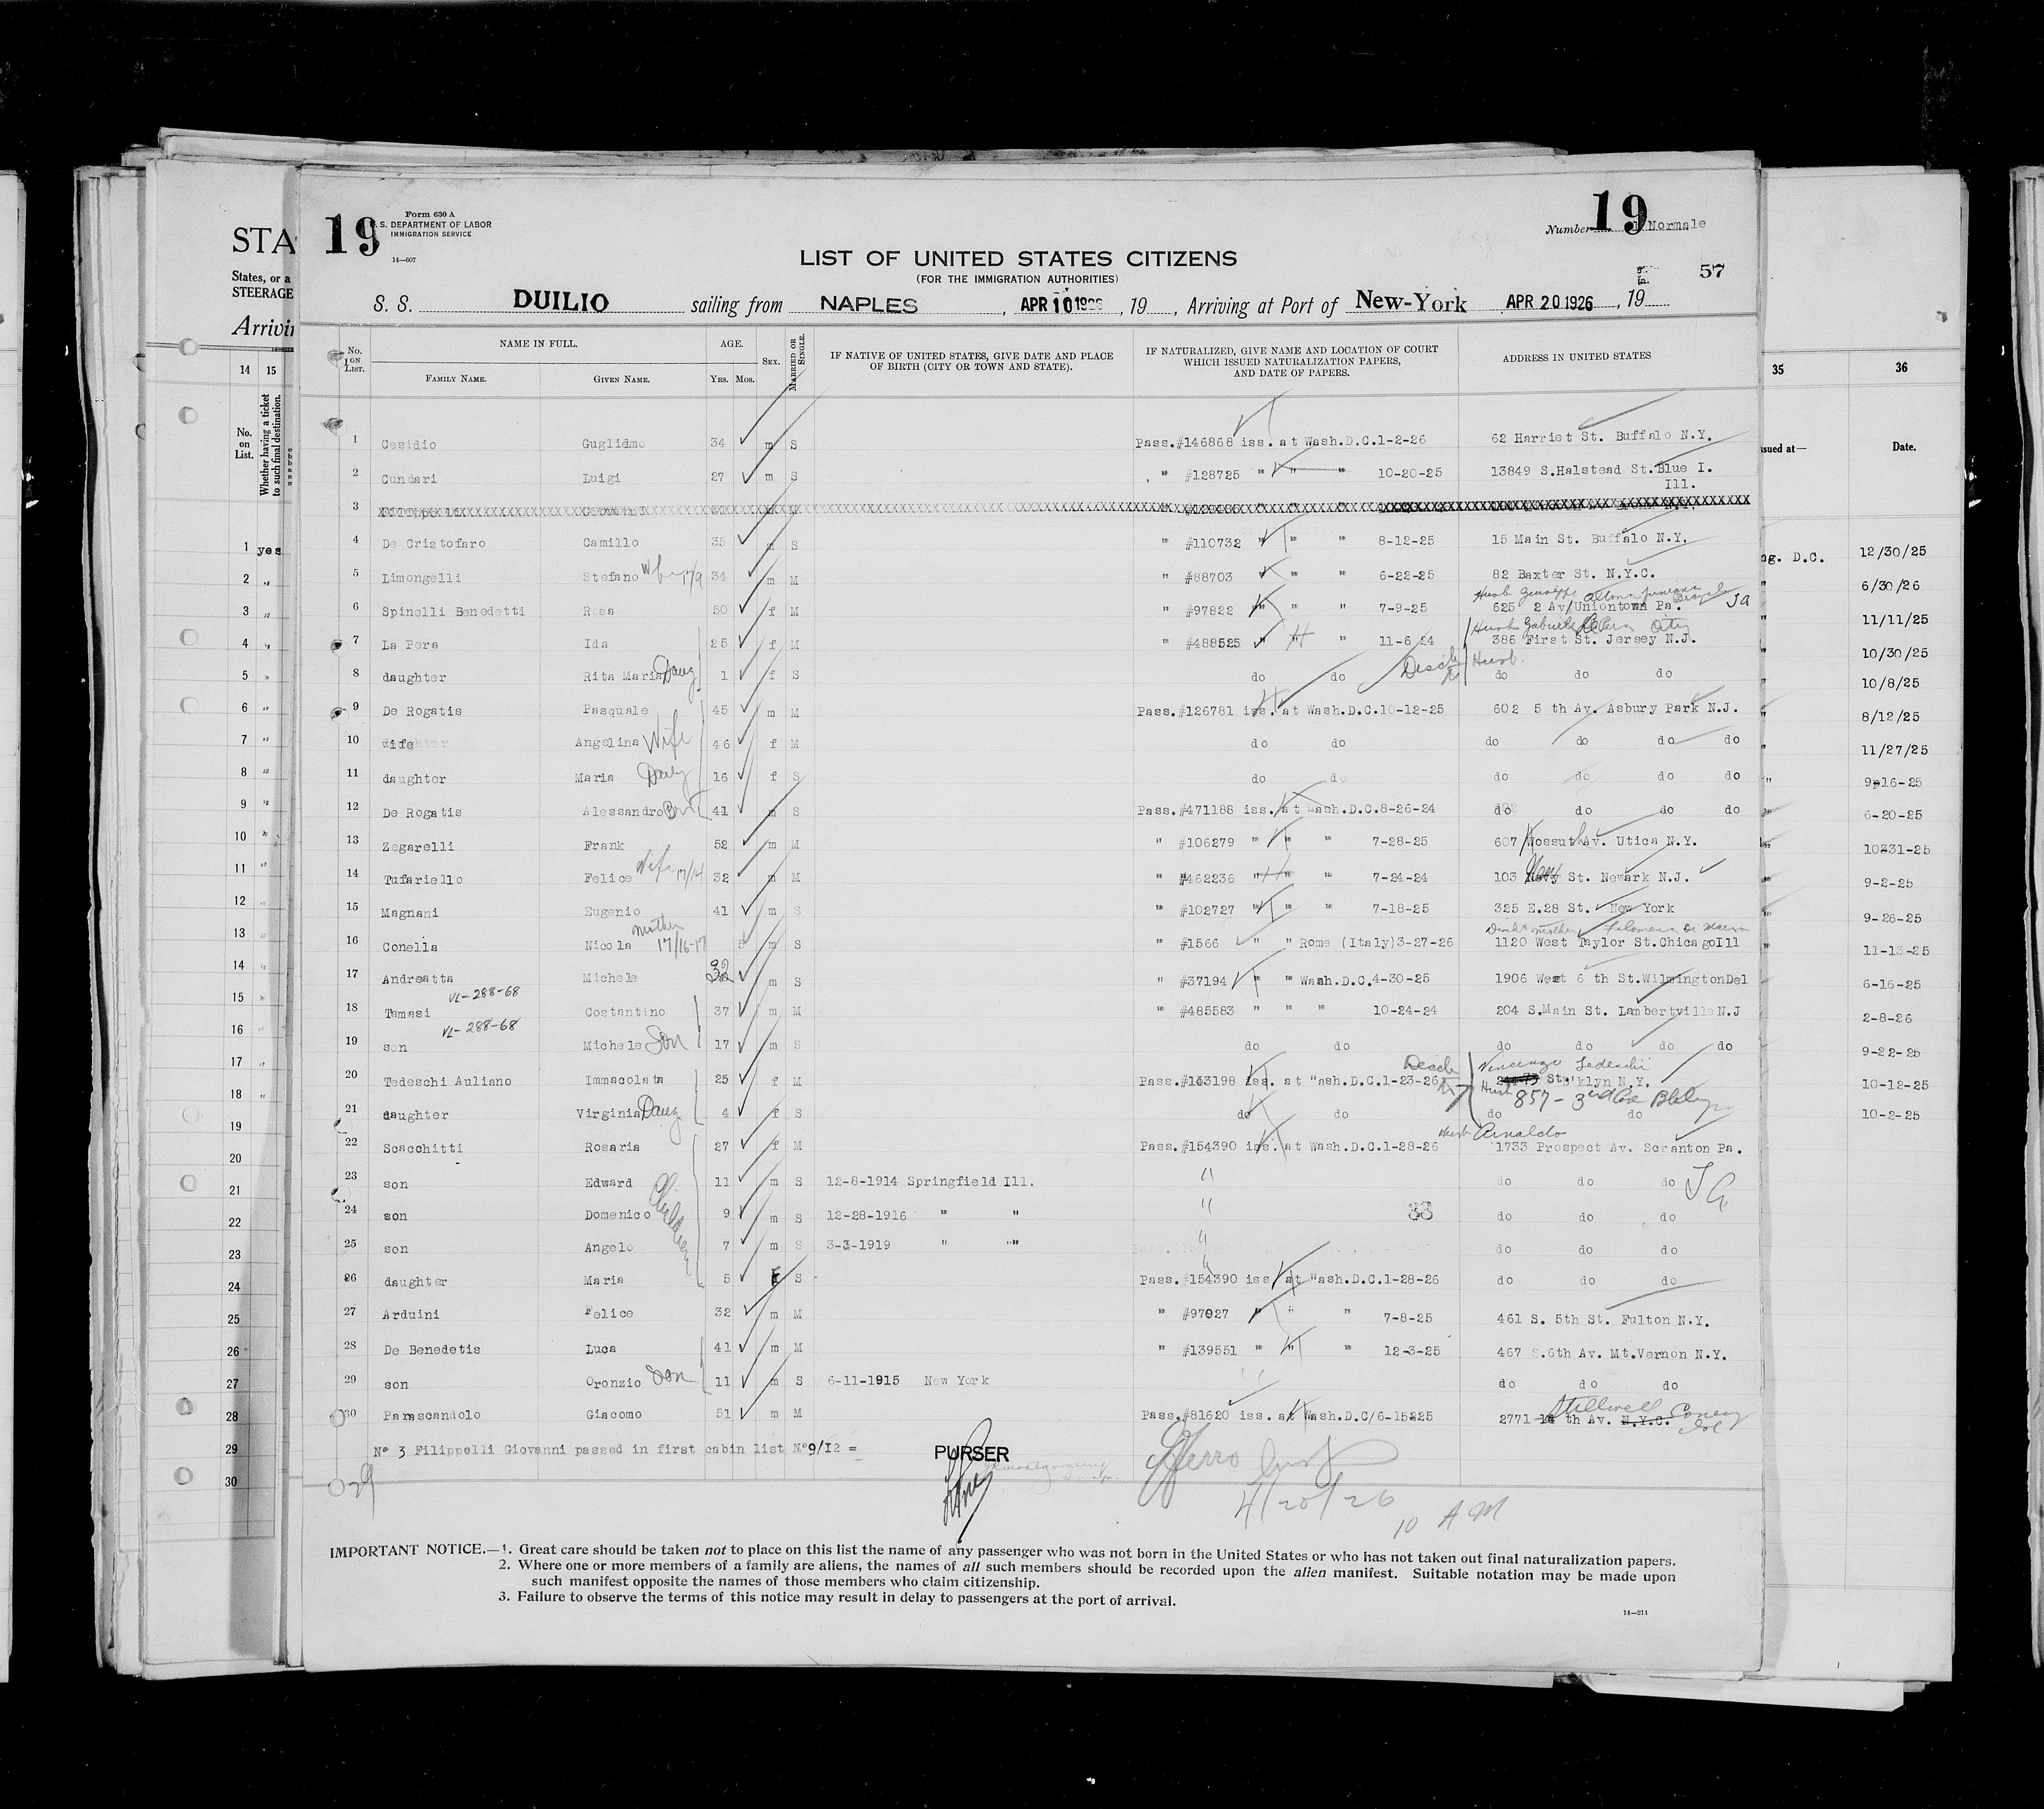 19
Form 630 A
U. S. DEPARTMENT OF LABOR
IMMIGRATION SERVICE
14—607
Number 19 Normale
57
LIST OF UNITED STATES CITIZENS
(FOR THE IMMIGRATION AUTHORITIES)
S. S. DUILIO sailing from NAPLES, APR 10 1926, 19 , Arriving at Port of New-York APR 20 1926, 19
No. on List. NAME IN FULL. AGE. Sex. Married or Single. IF NATIVE OF UNITED STATES, GIVE DATE AND PLACE OF BIRTH (CITY OR TOWN AND STATE). IF NATURALIZED, GIVE NAME AND LOCATION OF COURT WHICH ISSUED NATURALIZATION PAPERS, AND DATE OF PAPERS. ADDRESS IN UNITED STATES
Family Name. Given Name. Yrs. Mos.
1 Cesidio Guglidmo 34 m S Pass.#146868 iss. at Wash.D.C.1-2-26 62 Harriet St. Buffalo N.Y.
2 Cundari Luigi 27 m S " #128725 " " " 10-20-25 13849 S.Halstead St.Blue I. Ill.
3
4 De Cristofaro Camillo 35 m S " #110732 " " " 8-12-25 15 Main St. Buffalo N.Y.
5 Limongelli Stefano 34 m M " #88703 " " " 6-22-25 82 Baxter St. N.Y.C.
6 Spinelli Benedetti Rosa 50 f M " #97822 " " " 7-9-25 625 2 Av/Uniontown Pa.
7 La Pera Ida 25 f M " #488525 " " " 11-6 24 386 First St. Jersey N.J.
8 daughter Rita Maria Daug 1 f S do do do do do
9 De Rogatis Pasquale 45 m M Pass.#126781 iss. at Wash.D.C.10-12-25 602 5 th Av. Asbury Park N.J.
10 wife Angelina Wife 46 f M do do do do do do
11 daughter Maria Daug 16 f S do do do do do do
12 De Rogatis Alessandro 41 m S Pass.#471188 iss. at Wash.D.C.8-26-24 do do do do
13 Zegarelli Frank 52 m M " #106279 " " " 7-28-25 607 Kossuth Av. Utica N.Y.
14 Tufariello Felice Wife 17/14 32 m M " #462236 " " " 7-24-24 103 St. Newark N.J.
15 Magnani Eugenio 41 m S " #102727 " " " 7-18-25 325 E.28 St. New York
16 Conella Nicola mother 17/16-17 5 m S " #1566 " " Rome (Italy)3-27-26 1120 West Taylor St.ChicagoIll
17 Andreatta Michele 32 m S " #37194 " " Wash.D.C.4-30-25 1906 West 6 th St.WilmingtonDel
VL-288-68
18 Tamasi Costantino 37 m M " #485583 " " " 10-24-24 204 S.Main St. Lambertville N.J
VL-288-68
19 son Michele Son 17 m S do do do do do do
20 Tedeschi Auliano Immacolata 25 f M Pass.#143198 iss. at "ash.D.C.1-23-26 Vincenzo Tedeschi St. B'klyn N.Y.
21 daughter Virginia Daug 4 f S do do Husb 857 - 3rd Ave Bklyn do do
22 Scacchitti Rosaria 27 f M Pass.#154390 iss. at Wash.D.C.1-28-26 Husb Arnaldo 1733 Prospect Av. Scranton Pa.
23 son Edward 11 m S 12-8-1914 Springfield Ill. " do do do
24 son Domenico Children 9 m S 12-28-1916 " " " do do do
25 son Angelo 7 m S 3-3-1919 " "" " do do do
26 daughter Maria 5 f S Pass.#154390 iss. at "ash.D.C.1-28-26 do do do
27 Arduini Felice 32 m M " #97027 " " " 7-8-25 461 S. 5th St. Fulton N.Y.
28 De Benedetis Luca 41 m M " #139551 " " " 12-3-25 467 S.6th Av. Mt.Vernon N.Y.
29 son Oronzio Son 11 m S 6-11-1915 New York do do do
30 Parascandolo Giacomo 51 m M Pass.#81620 iss. at Wash.D.C/6-15-25 2771 Stillwell th Av. N.Y.C. Coney Isl
N° 3 Filippelli Giovanni passed in first cabin list N°9/12 =
PURSER
29
4/20/26
10 AM
IMPORTANT NOTICE.—1. Great care should be taken not to place on this list the name of any passenger who was not born in the United States or who has not taken out final naturalization papers.
2. Where one or more members of a family are aliens, the names of all such members should be recorded upon the alien manifest. Suitable notation may be made upon
such manifest opposite the names of those members who claim citizenship.
3. Failure to observe the terms of this notice may result in delay to passengers at the port of arrival.
14—214
STA
States, or a
STEERAGE
Arrivin
14 15
No. on List.
Whether having a ticket to such final destination.
1 yes
2 "
3 "
4 "
5 "
6 "
7 "
8 "
9 "
10 "
11 "
12 "
13 "
14 "
15 "
16 "
17 "
18 "
19
20
21
22
23
24
25
26
27
28
29
30
35 36
ssued at— Date.
ng. D.C. 12/30/25
" 6/30/26
" 11/11/25
" 10/30/25
" 10/8/25
" 8/12/25
" 11/27/25
" 9-16-25
" 6-20-25
" 10-31-25
" 9-2-25
" 9-26-25
" 11-13-25
" 6-16-25
2-8-26
9-22-25
10-12-25
10-2-25